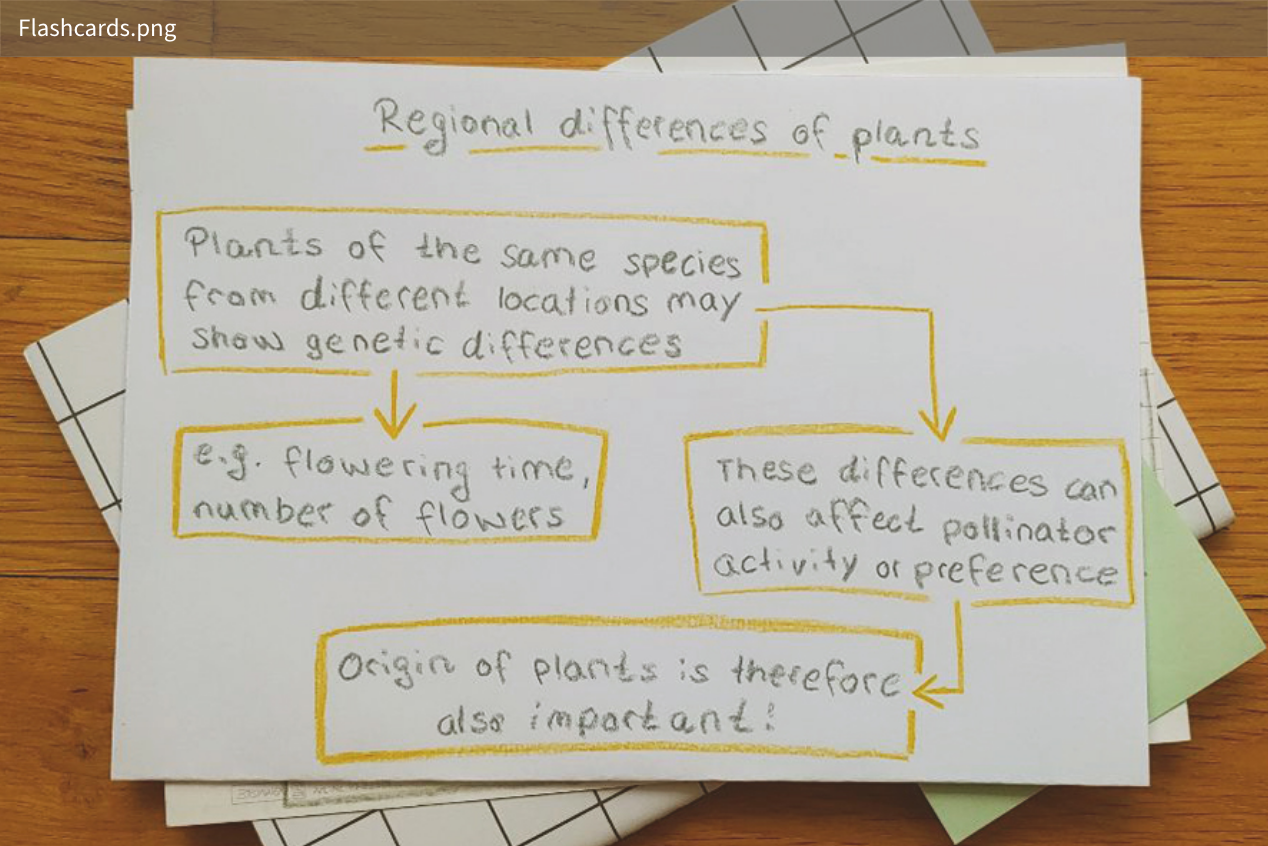 Flashcards.png
Regional differences of plants
Plants of the same species
from different locations may
show genetic differences
e.g. flowering time,
number of flowers
These differences can
also affect pollinator
activity or preference
Origin of plants is therefore
also important!